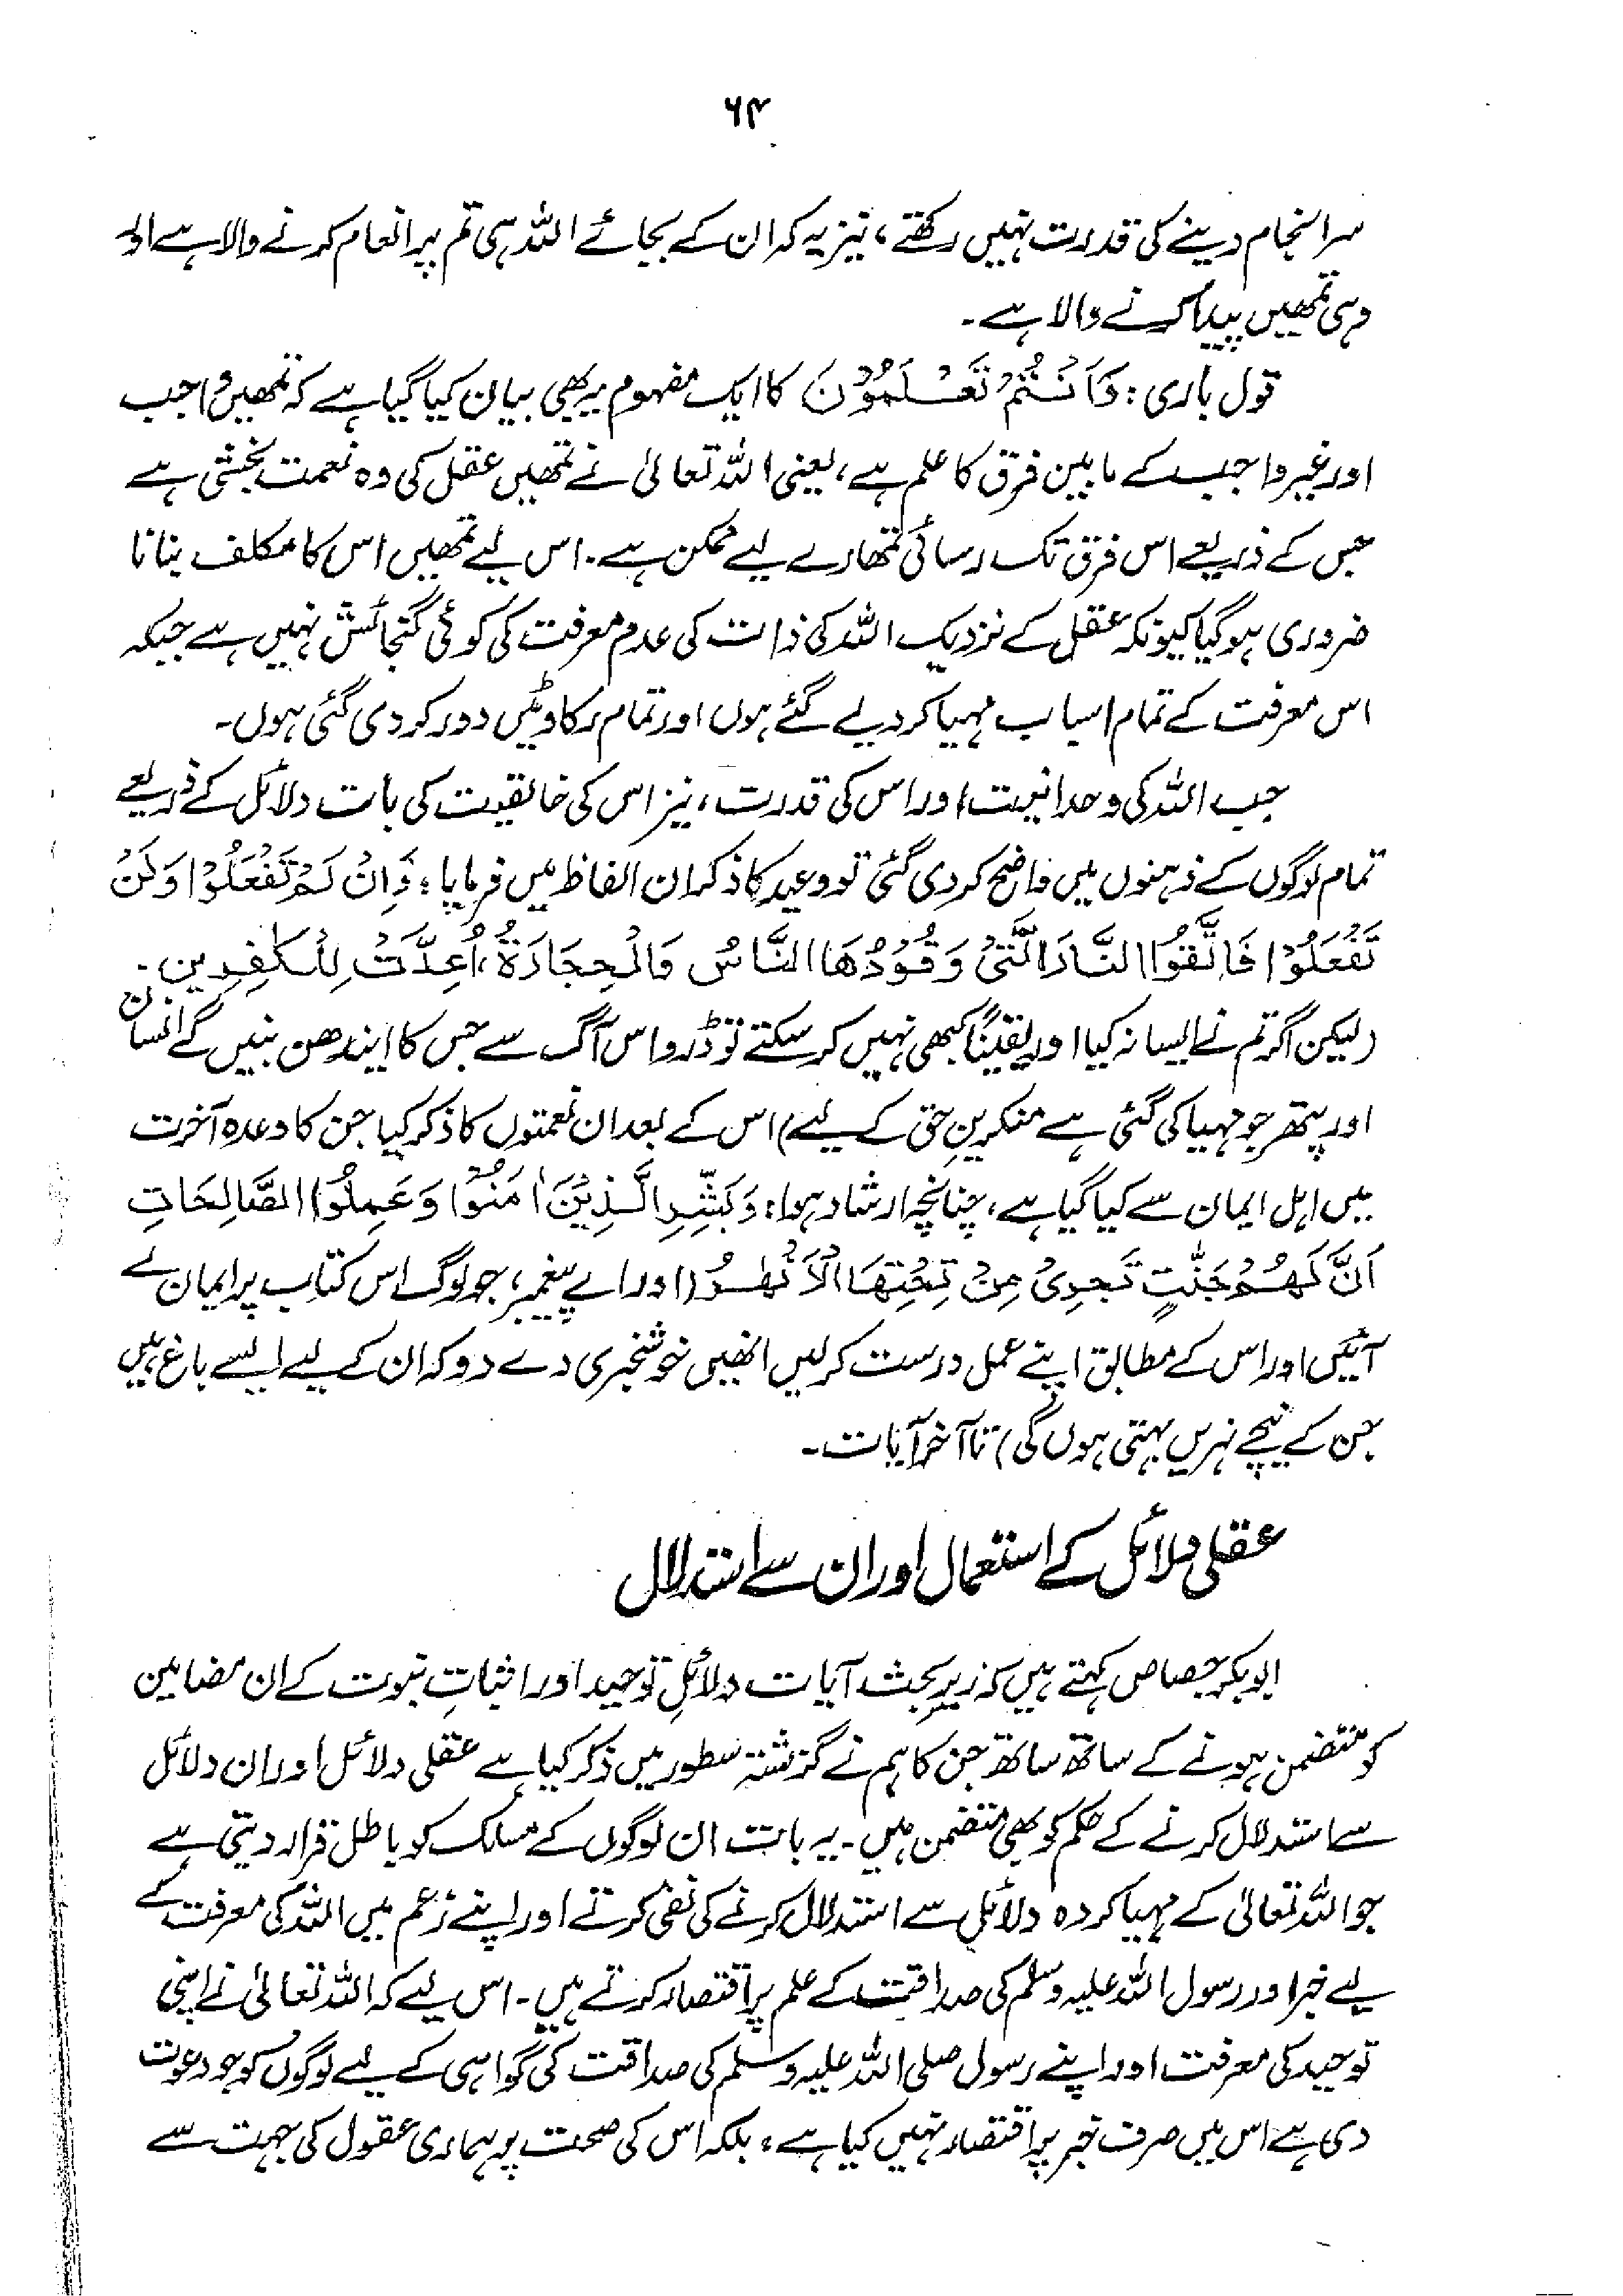 ۶۴
سرانجام دینے کی قدرت نہیں رکھتے، نیز یہ کہ ان کے بجائے اللہ ہی تم پر انعام کرنے والا ہے اور
وہی تمھیں پیدا کرنے والا ہے۔
قول باری: وَاَنْتُمْ تَعْلَمُوْنَ کا ایک مفہوم یہ بھی بیان کیا گیا ہے کہ تمھیں واجب
اور غیر واجب کے مابین فرق کا علم ہے، یعنی اللہ تعالیٰ نے تمھیں عقل کی وہ نعمت بخشی ہے
جس کے ذریعے اس فرق تک رسائی تمھارے لیے ممکن ہے۔ اس لیے تمھیں اس کا مکلف بنانا
ضروری ہو گیا کیونکہ عقل کے نزدیک اللہ کی ذات کی عدم معرفت کی کوئی گنجائش نہیں ہے جبکہ
اس معرفت کے تمام اسباب مہیا کر دیے گئے ہوں اور تمام رکاوٹیں دور کر دی گئی ہوں۔
جب اللہ کی وحدانیت اور اس کی قدرت، نیز اس کی خالقیت کی بات دلائل کے ذریعے
تمام لوگوں کے ذہنوں میں واضح کر دی گئی تو وعید کا ذکر ان الفاظ میں فرمایا: فَاِنْ لَمْ تَفْعَلُوْا وَلَنْ
تَفْعَلُوْا فَاتَّقُوا النَّارَ الَّتِیْ وَقُوْدُهَا النَّاسُ وَالْحِجَارَةُ، اُعِدَّتْ لِلْکٰفِرِین۔
(لیکن اگر تم نے ایسا نہ کیا اور یقیناً کبھی نہیں کر سکتے تو ڈرو اس آگ سے جس کا ایندھن بنیں گے انسان
اور پتھر جو مہیا کی گئی ہے منکرینِ حق کے لیے) اس کے بعد ان نعمتوں کا ذکر کیا جن کا وعدہ آخرت
میں اہل ایمان سے کیا گیا ہے، چنانچہ ارشاد ہوا: وَبَشِّرِ الَّذِیْنَ اٰمَنُوْا وَعَمِلُوا الصَّالِحَاتِ
اَنَّ لَهُمْ جَنّٰتٍ تَجْرِیْ مِنْ تَحْتِهَا الْاَنْهٰرُ (اور اے پیغمبر، جو لوگ اس کتاب پر ایمان لے
آئیں اور اس کے مطابق اپنے عمل درست کر لیں انھیں خوشخبری دے دو کہ ان کے لیے ایسے باغ ہیں
جن کے نیچے نہریں بہتی ہوں گی) تا آخر آیات۔
عقلی دلائل کے استعمال اور ان سے استدلال
ابوبکر جصاص کہتے ہیں کہ زیرِ بحث آیات دلائلِ توحید اور اثباتِ نبوت کے ان مضامین
کو متضمن ہونے کے ساتھ ساتھ جن کا ہم نے گزشتہ سطور میں ذکر کیا ہے عقلی دلائل اور ان دلائل
سے استدلال کرنے کے حکم کو بھی متضمن ہیں۔ یہ بات ان لوگوں کے مسلک کو باطل قرار دیتی ہے
جو اللہ تعالیٰ کے مہیا کردہ دلائل سے استدلال کرنے کی نفی کرتے اور اپنے زعم میں اللہ کی معرفت کے
لیے خبر اور رسول اللہ علیہ وسلم کی صداقت کے علم پر اقتصار کرتے ہیں۔ اس لیے کہ اللہ تعالیٰ نے اپنی
توحید کی معرفت اور اپنے رسول صلی اللہ علیہ وسلم کی صداقت کی گواہی کے لیے لوگوں کو جو دعوت
دی ہے اس میں صرف خبر پر اقتصار نہیں کیا ہے، بلکہ اس کی صحت پر ہماری عقول کی جہت سے